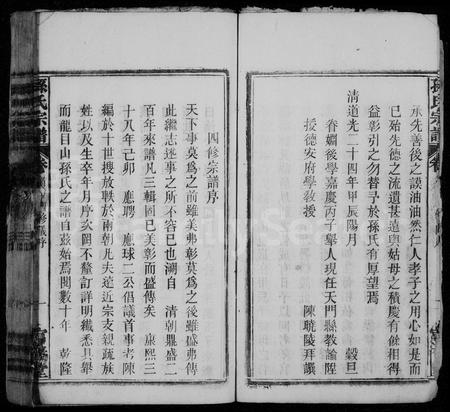 承先善後之謨油油然仁人孝子之用心如是而
已始先德之流遺甚遠與姑母之積慶有俾相得
益彰引之勿替予於孫氏有厚望焉
清道光二十四年甲辰陽月 穀旦
眷媚後學嘉慶丙子舉人現任天門縣教諭陞
授德安府學教授 陳琥陵拜譔
孫氏宗譜
四修宗譜序
天下事莫為之前雖美弗彰莫為之後雖盛弗傳
此繼志述事之所不容已也溯自 清朝鼎盛二
百年來譜凡三輯固已美彰而盛傳矣 康熙三
十八年己卯 應聘 應球二公倡議首事者陳
編於十世搜放軼於兩朝凡夫遠近宗支親疏族
姓以及生卒年月序次罔不釐訂詳明纖悉具舉
而龍目山孫氏之譜自茲始焉閱數十年 乾隆
孫氏宗譜
序
一